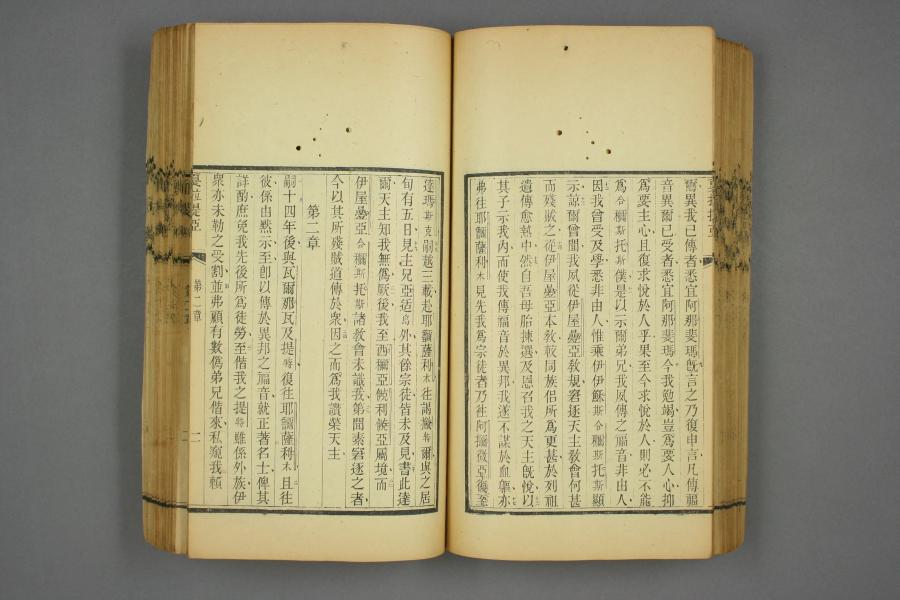 爾異我已傳者悉宜阿那斐瑪旣言之乃復申言凡傳福
音異爾已受者悉宜阿那斐瑪今我勉竭豈爲要人心抑
爲要主心且復求悅於人乎果至今求悅於人則必不能
爲合穪斯托斯僕是以示爾弟兄我夙傳之福音非由人
因我曾受及學悉非由人惟乘伊伊穌斯合穪斯托斯顯
示諒爾曾聞我夙從伊屋疊亞敎規窘逐天主敎會何甚
而殘賊之從伊屋疊亞本敎較同族侶所爲更甚於列祖
遺傳愈熱中然自吾母胎揀選及恩召我之天主旣悅以
其子示我內而使我傳福音於異邦我遂不謀於血軀亦
弗往耶嚻薩利木見先我爲宗徒者乃往阿
達瑪斯克嗣越三載赴耶嚻薩利木往謁撒特爾與之居
旬有五日見主兄亞适烏外其餘宗徒皆未及見書此達
爾天主知我無僞厥後我至西穪亞曁利
伊屋疊亞合穪斯托斯諸敎會未識我第聞素窘逐之者
今以其所殘賊道傳於衆因之而爲我讚榮天主
第二章
嗣十四年後與瓦爾那瓦及提特復往耶嚻薩利木且往
彼係由黙示至卽以傳於異邦之福音就正著名士俾其
詳酌庶免我先後所爲徒勞至偕我之提特雖係外族伊
衆亦未勒之受割並弗顧有數僞弟兄偕來私窺我賴
戛拉提亞
第二章
二